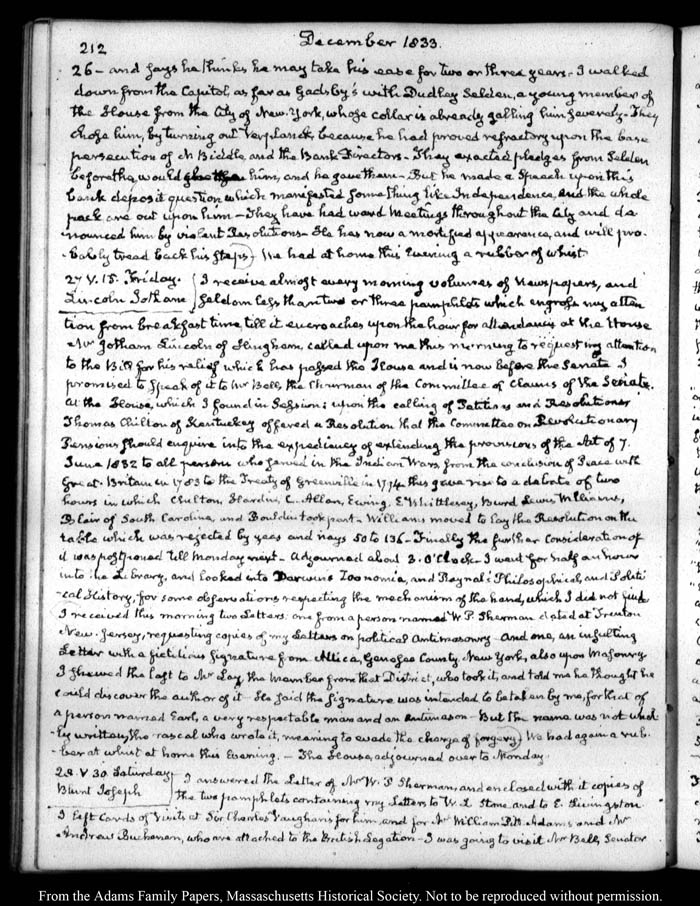 212
December 1833.
26 – and says he thinks he may take his ease for two or three years. I walked
down from the Capitol, as far as Gadsby's with Dudley Selden, a young member of
the House from the City of New-York, whose collar is already galling him severely – They
chose him, by turning out Verplanck, because he had proved refractory upon the base
persecution of N Biddle, and the Bank Directors – They exacted pledges from Selden
before they would him, and he gave them – But he made a Speech upon this
bank deposit question which manifested something like Independence, and the whole
pack are out upon him – They have had ward Meetings throughout the City and de-
nounced him by violent Resolutions – He has now a mortified appearance, and will pro-
bably tread back his steps) We had at home this Evening a rubber of whist
27 V. 15. Friday.
Lincoln Gotham
I receive almost every morning volumes of Newspapers, and
seldom less than two or three pamphlets which engross my atten
tion from breakfast time, till it encroaches upon the hour for attendance at the House
Mr Gotham Lincoln of Hingham, called upon me this morning to request my attention
to the Bill for his relief which has passed the House and is now before the Senate I
promised to speak of it to Mr Bell, the Chairman of the Committee of Claims of the Senate.
At the House, which I found in Session; upon the calling of Petitions and Resolutions
Thomas Chilton of Kentuckey offered a Resolution that the Committee on Revolutionary
Pensions should enquire into the expediency of extending the provisions of the Act of 7.
June 1832 to all persons who served in the Indian Wars from the conclusion of Peace with
Great-Britain in 1783 to the Treaty of Greenville in 1794 this gave rise to a debate of two
hours in which Chilton, Hardin, C. Allan, Ewing, E Whittlesey, Burd Lewis Williams,
Blair of South Carolina, and Bouldin took part – Williams moved to lay the Resolution on the
table which was rejected by yeas and nays 50 to 136 – Finally the further consideration of
it was postponed till Monday next – Adjourned about 3. O'Clock – I went for half an hour
into the Library, and looked into Darwin's Zoonomia, and Raynal's Philosophical, and Politi
-cal History, for some observations respecting the mechanism of the hand, which I did not find
I received this morning two Letters: one from a person named W. P. Sherman dated at Trenton
New-Jersey, requesting copies of my Letters on political Antimasonry – And one, an insulting
Letter with a fictitious signature from Attica, Genesee County New York, also upon Masonry
I shewed the last to Mr Lay, the Member from that District, who took it, and told me he thought he
could discover the author of it – He said the signature was intended to be taken by me, for that of
a person named Earl, a very respectable man and an Antimason – But the name was not
written, the rascal who wrote it, meaning to evade the charge of forgery) We had again a rub-
ber at whist at home this Evening. – The House, adjourned over to Monday.
28. V. 30. Saturday
Blunt Joseph
I answered the Letter of Mr W. P Sherman, and enclosed with it copies of
the two pamphlets containing my Letters to W. L Stone, and to E. Livingston
I left Cards of Visits at Sir Charles Vaughan's for him, and for Mr William Pitt Adams and Mr
Andrew Buchanan, who are attached to the British Legation – I was going to visit Mr Bell, Senator
From the Adams Family Papers, Massachusetts Historical Society. Not to be reproduced without permission.